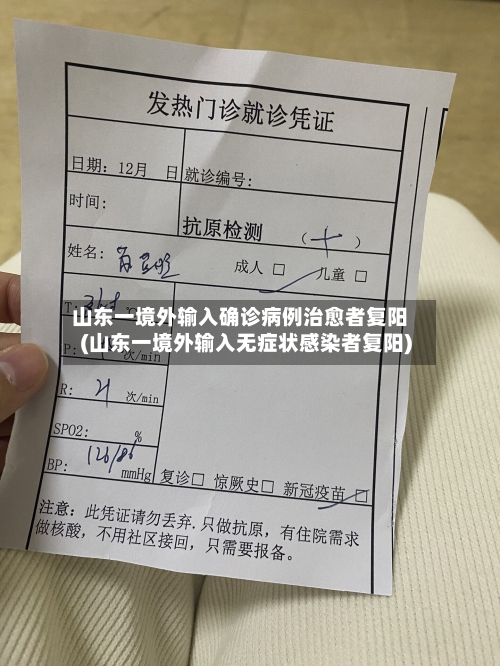 发热门诊就诊凭证
日期：12月 日 就诊编号：
时间：
抗原检测 （+）
姓名： 成人 □ 儿童 □
T: ℃
山东一境外输入确诊病例治愈者复阳
(山东一境外输入无症状感染者复阳)
P: 次/min
R: 21 次/min
SPO2: %
BP: 126/86 mmHg
复诊□ 惊厥史□ 新冠疫苗□
注意：此凭证请勿丢弃.只做抗原，有住院需求
做核酸，不用社区接回，只需要报备。